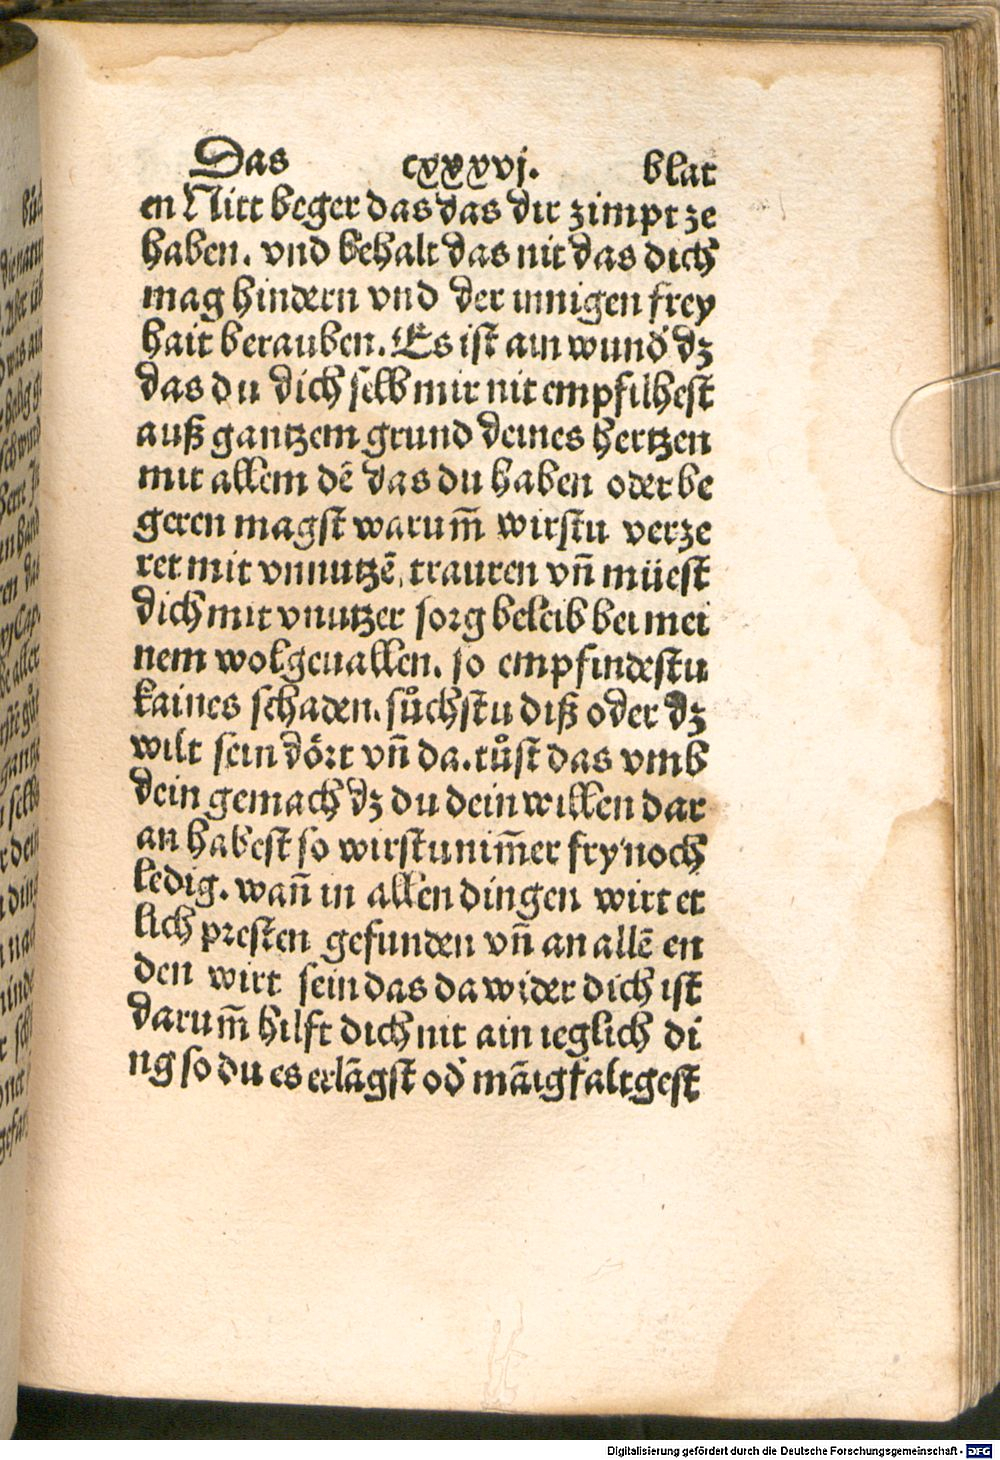 Das cxxxvj. blat
en Nitt beger das das dir zimpt ze
haben. vnd behalt das nit das dich
mag hindern vnd der innigen frey
hait berauben. Es ist ain wund' dz
das du dich selb mir nit empfilhest
auß gantzem grund deines hertzen
mit allem dē das du haben oder be
geren magst warum̄ wirstu verze
ret mit vnnutzē trauren vn̄ müest
dich mit vnutzer sorg beleib bei mei
nem wolgeuallen. so empfindestu
kaines schaden. sůchstu diß oder dz
wilt sein dört vn̄ da. tůst das vmb
dein gemach dz du dein willen dar
an habest so wirstu nim̄er fry noch
ledig. wan̄ in allen dingen wirt et
lich presten gefunden vn̄ an allē en
den wirt sein das da wider dich ist
darum̄ hilft dich nit ain ieglich di
ng so du es erlāgst od' māigfaltgest
Digitalisierung gefördert durch die Deutsche Forschungsgemeinschaft - DFG